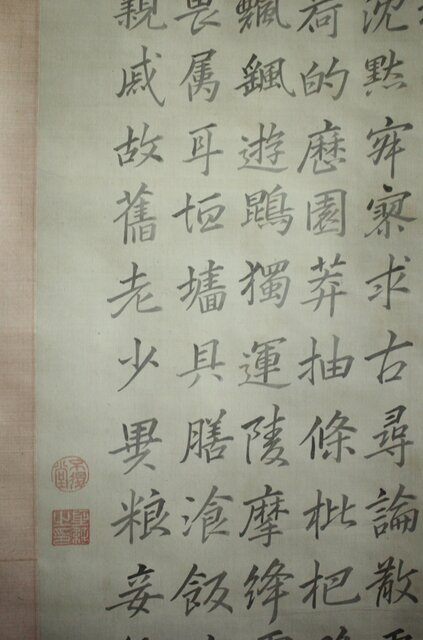 沈黙寂寥求古尋論散
荷的歷園莽抽條枇杷
飄颻遊鵾獨運陵摩絳
畏属耳垣墻具膳飡飯
親戚故舊老少異粮妾